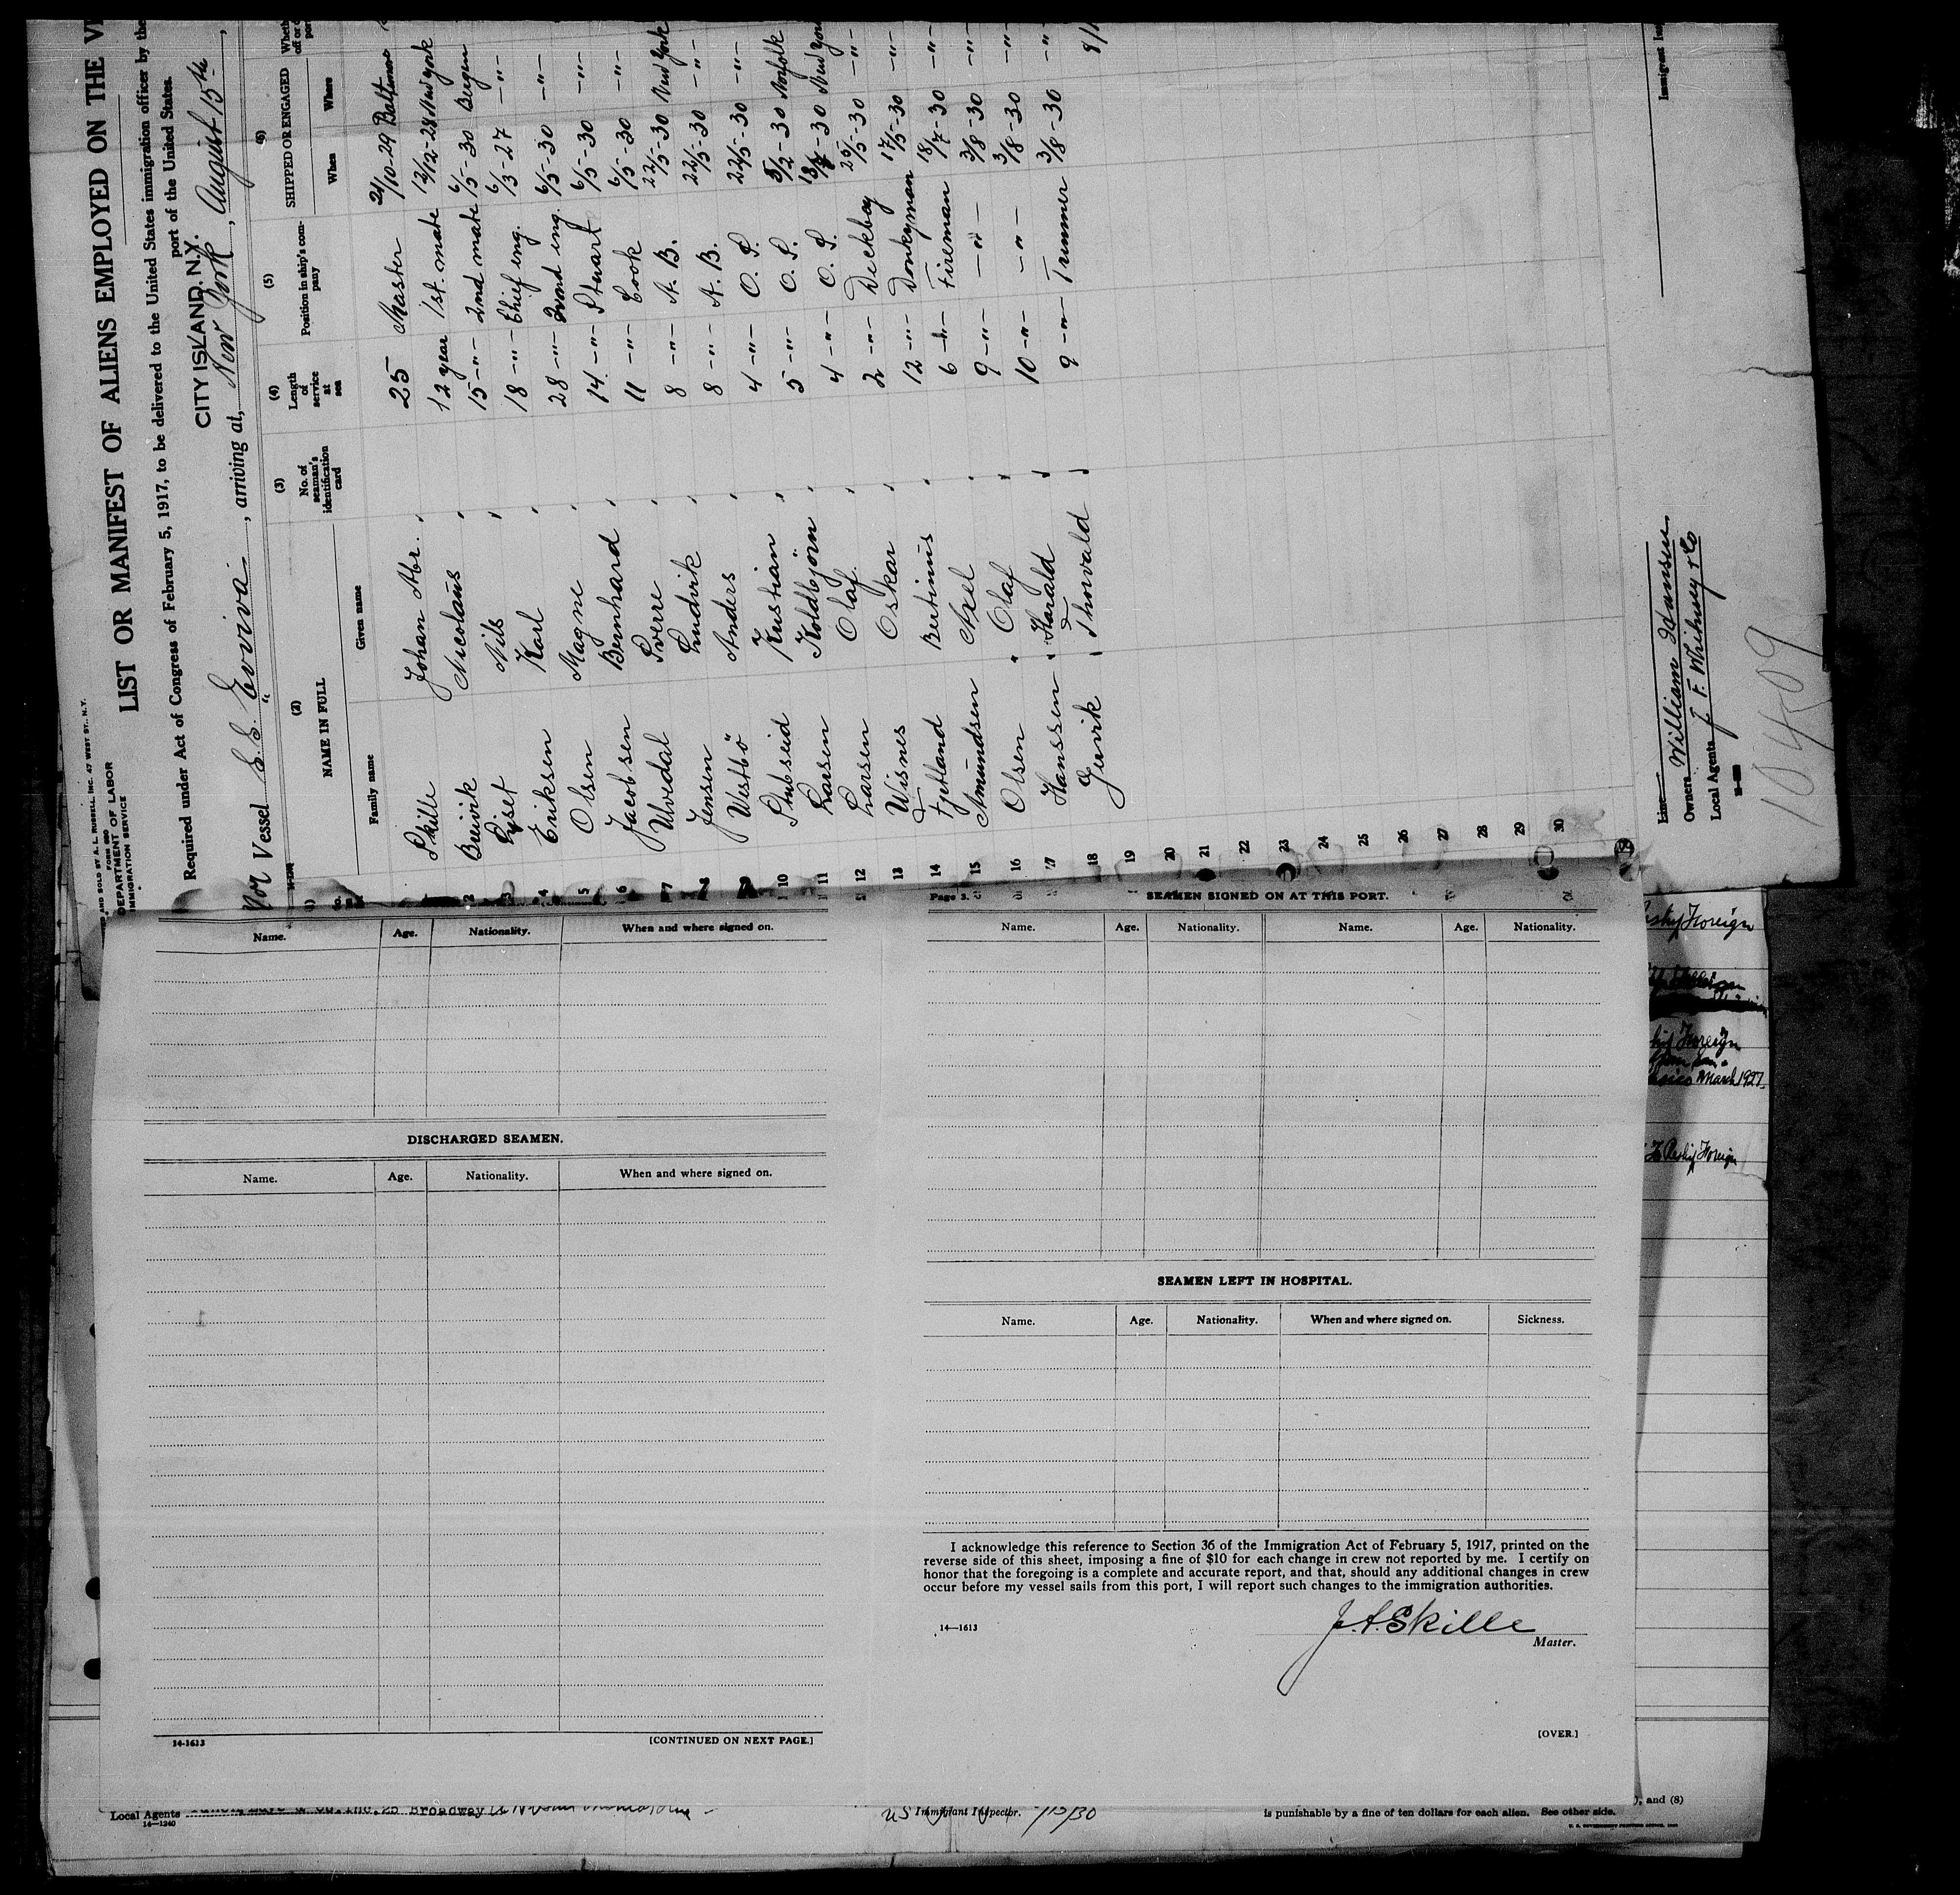 AND SOLD BY A. L. RUSSELL, INC. 47 WEST ST., N.Y.
FORM 680
DEPARTMENT OF LABOR
IMMIGRATION SERVICE
LIST OR MANIFEST OF ALIENS EMPLOYED ON THE
Required under Act of Congress of February 5, 1917, to be delivered to the United States immigration officer by the
port of the United States.
CITY ISLAND, N.Y.
Nor Vessel S.S. "Eviva", arriving at, New York, August 15th,
(1) (2) (3) (4) (5) (6)
NAME IN FULL No. of seaman's identification card Length of service at sea Position in ship's company SHIPPED OR ENGAGED
Family name Given name When Where
Skille Johan Abr. 25 Master 21/10-29 Baltimore
2 Breivik Nicolaus 12 year 1st. mate 12/12-28 New York
3 Nils 15 -"- 2nd mate 6/5-30 Bergen
4 Eriksen Karl 18 -"- Chief eng. 6/3-27 -"-
5 Olsen Magne 28 -"- 2nd eng. 6/5-30 -"-
6 Jacobsen Bernhard 14 -"- Stuart 6/5-30 -"-
7 Utvedal Sverre 11 -"- Cook 6/5-30 -"-
8 Jensen Ludvik 8 -"- A. B. 22/5-30 New York
9 Vestbö Anders 8 -"- A. B. 22/5-30 -"-
10 Stubseid Kristian 4 -"- O. S. 22/5-30 -"-
11 Larsen Koldbjörn 5 -"- O. S. 5/2-30 Norfolk
12 Larsen Olaf 4 -"- O. S. -30 New York
13 Wisnes Oskar 2 -"- Deckboy 25/5-30 -"-
14 Fjetland Bertinius 12 -"- Donkeyman 17/5-30 -"-
15 Amundsen Axel 6 -"- Fireman 18/7-30 -"-
16 Olsen Olaf 9 -"- -"- 3/8-30 -"-
17 Hanssen Harald 10 -"- -"- 3/8-30 -"-
18 Jervik Thorvald 9 -"- Trimmer 3/8-30 -"-
19
20
21
22
23
24
25
26
27
28
29
30
Line
Owners William Hansen
Local Agents J. F. Whitney & Co
Immigrant
Name. Age. Nationality. When and where signed on.
DISCHARGED SEAMEN.
Name. Age. Nationality. When and where signed on.
14-1613
[CONTINUED ON NEXT PAGE.]
Page 3.
SEAMEN SIGNED ON AT THIS PORT.
Name. Age. Nationality. Name. Age. Nationality.
SEAMEN LEFT IN HOSPITAL.
Name. Age. Nationality. When and where signed on. Sickness.
I acknowledge this reference to Section 36 of the Immigration Act of February 5, 1917, printed on the
reverse side of this sheet, imposing a fine of $10 for each change in crew not reported by me. I certify on
honor that the foregoing is a complete and accurate report, and that, should any additional changes in crew
occur before my vessel sails from this port, I will report such changes to the immigration authorities.
14—1613
J.A. Skille
Master.
[OVER.]
Foreign
Foreign
March 1927
Foreign
Local Agents 25 Broadway
14—1240
US Immigrant Inspector.
is punishable by a fine of ten dollars for each alien. See other side.
), and (8)